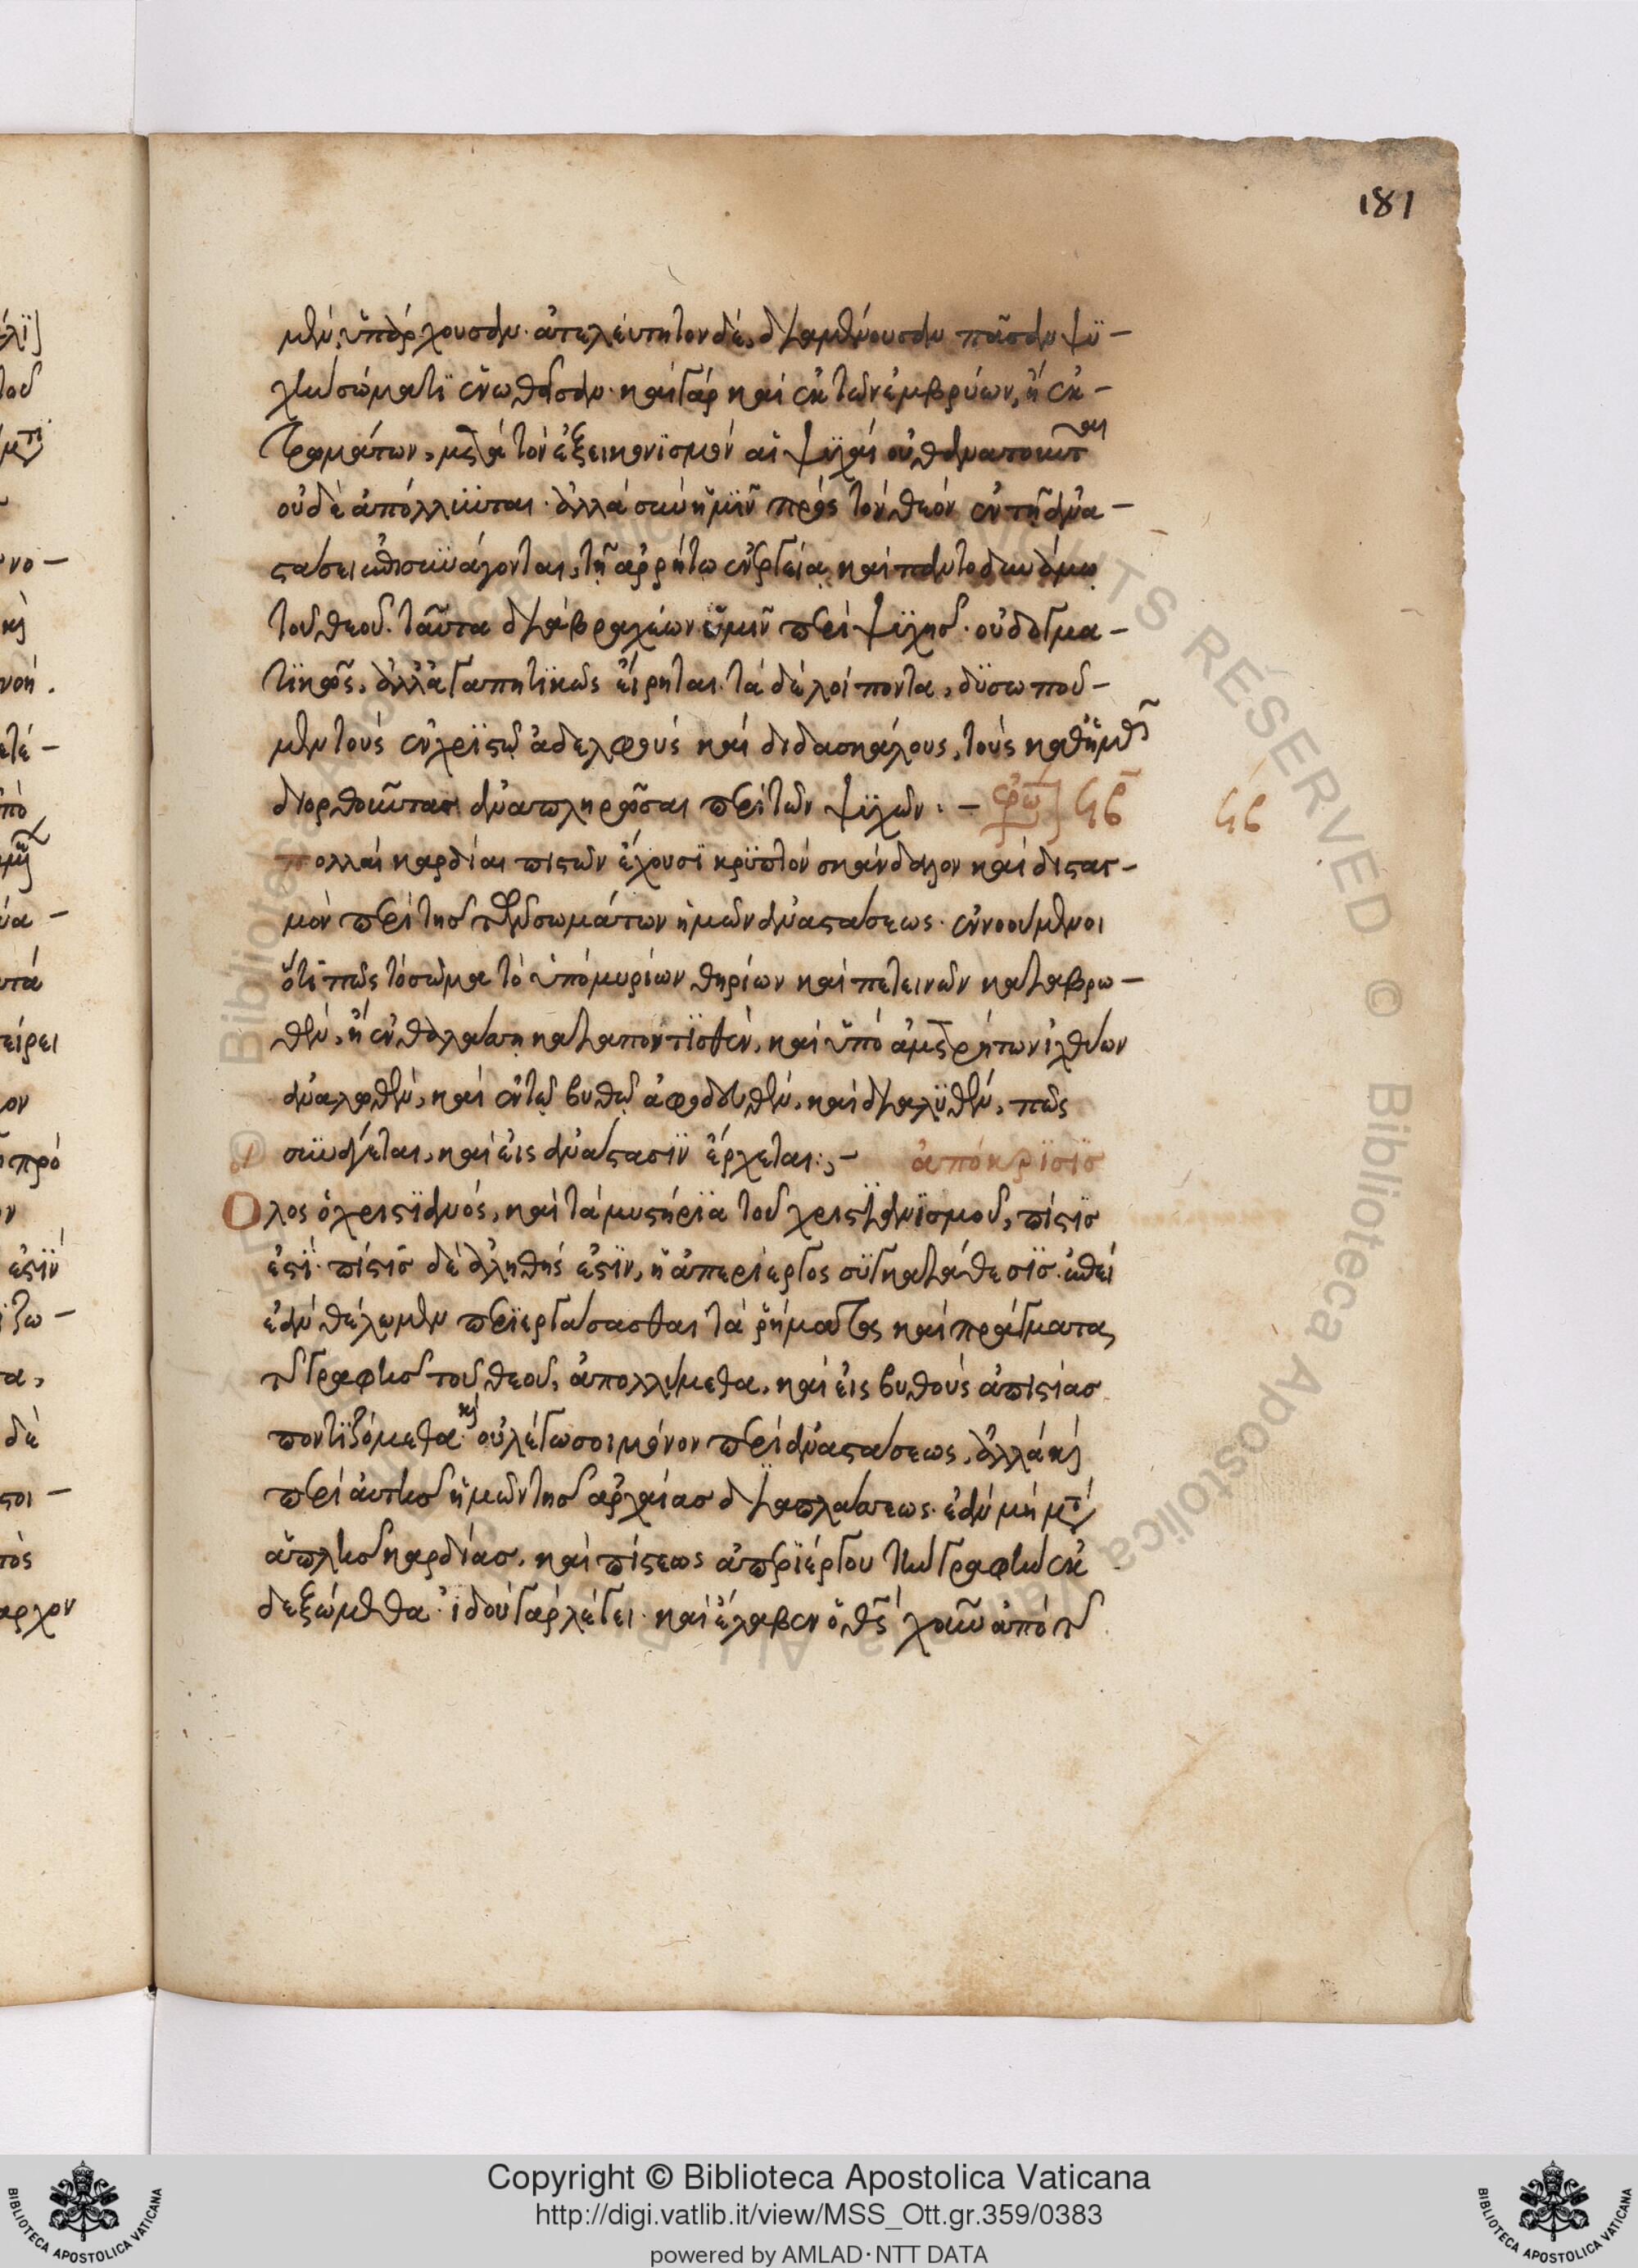 181
μὲν ὑπάρχουσαν. ἀτελεύτητον δὲ, διαμένουσαν πᾶσαν ψϋ-
χὴν σώματϊ ἑνωθεῖσαν. καὶ γὰρ καὶ ἐκ τῶν ἐμβρύων, ἢ ἐκ-
τρωμάτων, μετὰ τὸν ἐξεικονϊσμὸν αἱ ψϋχαὶ οὐ θανατοῦνται
οὐδὲ ἀπόλλϋνται. ἀλλὰ σὺν ἡμῖν πρὸς τὸν θεὸν ἐν τῇ ἀνα-
στάσει ἐπισυνάγονται, τῇ ἀρρήτω ἐνεργεία καὶ παντοδυνάμω
τοῦ θεοῦ. ταῦτα διὰ βραχέων ὑμῖν περὶ ψϋχῆς. οὐ δογμα-
τϊκῶς, ἀλλὰ ἀγαπητϊκῶς εἴρηται. τὰ δὲ λοίποντα, δϋσωποῦ-
μεν τοὺς ἐν χρϊστῶ ἀδελφοὺς καὶ διδασκάλους, τοὺς καθ ἡμᾶς
διορθοῦντας ἀναπληρῶσαι περὶ τῶν ψϋχῶν. – ἐρώ
πολλαὶ καρδίαι πιστῶν ἔχουσϊ κρϋπτὸν σκάνδαλον καὶ διστασ-
μὸν περὶ τῆς τῶν σωμάτων ἡμῶν ἀναστάσεως. ἐννοούμενοι
ὅτι πῶς τὸ σῶμα τὸ ὑπὸ μυρίων θηρίων καὶ πετεινῶν καταβρω-
θὲν, ἢ ἐν θαλάσση καταποντϊσθὲν, καὶ ὑπὸ ἀμετρήτων ἰχθύων
ἀναλωθὲν, καὶ ἐν τῷ βυθῷ ἀφοδευθὲν, καὶ διαλϋθὲν, πῶς
συνάγεται, καὶ εἰς ἀνάστασϊν ἔρχεται:,– ἀπόκρϊσϊσ
Ὅλος ὁ χριστϊανὸς, καὶ τὰ μυστήρϊα τοῦ χριστϊανϊσμοῦ, πίστϊσ
ἐστϊ. πίστϊσ δὲ ἀληθής ἐστϊν, ἡ ἀπερίεργος σϋγκατάθεσϊσ. ἐπεὶ
ἐὰν θέλωμεν περϊεργάσασθαι τὰ ῥήματα καὶ πράγματα
τῆς γραφῆς τοῦ θεοῦ, ἀπολλύμεθα, καὶ εἰς βυθοὺς ἀπιστίας
ποντϊζόμεθα. καὶ οὐ λέγω σοι μόνον περὶ ἀναστάσεως, ἀλλὰ καὶ
περὶ αὐτῆς ἡμῶν τῆς ἀρχαίας διαπλάσεως. ἐὰν μὴ μετὰ
ἁπλῆς καρδίας, καὶ πίστεως ἀπερϊέργου τὴν γραφὴν ἐκ
δεξώμεθα. ἰδοὺ γὰρ λέγει. καὶ ἔλαβεν ὁ θεὸς χοῦν ἀπὸ τῆς
Copyright © Biblioteca Apostolica Vaticana
http://digi.vatlib.it/view/MSS_Ott.gr.359/0383
powered by AMLAD·NTT DATA